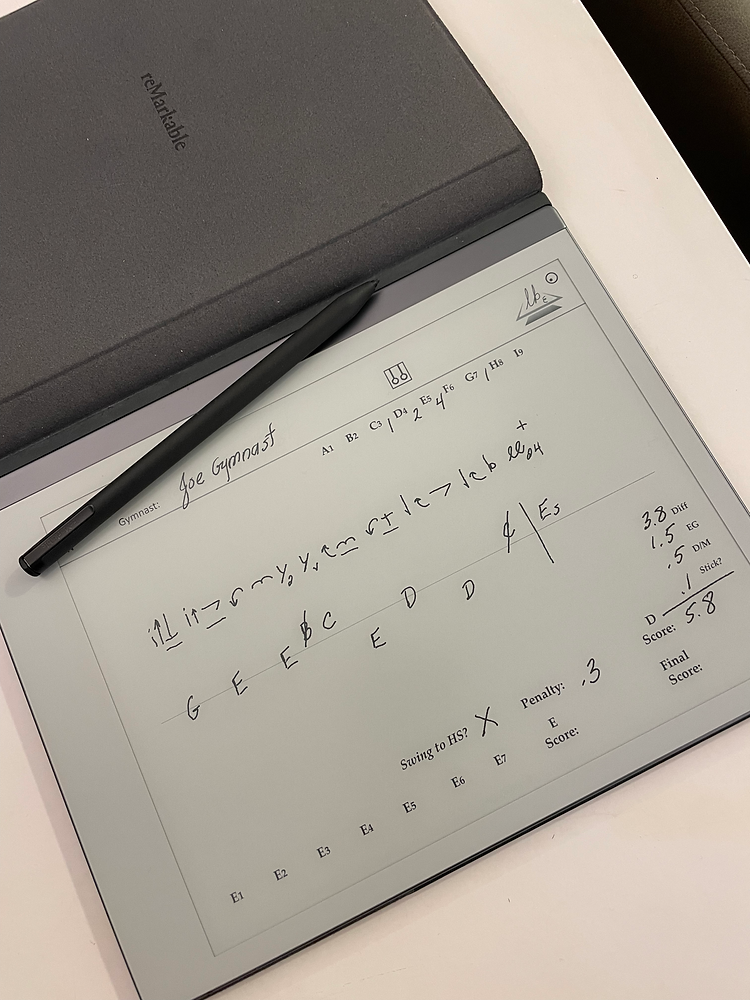 reMarkable
A1 B2 C3 1 D4 2 E5 4 F6 G7 1 H8 I9
Gymnast: Joe Gymnast
+
04
G E E B C E D D ¢ | E5
3.8 Diff
1.5 EG
.5 D/M
.1 Stick?
D Score: 5.8
Final Score:
Swing to HS? X
Penalty: .3
E Score:
E1 E2 E3 E4 E5 E6 E7